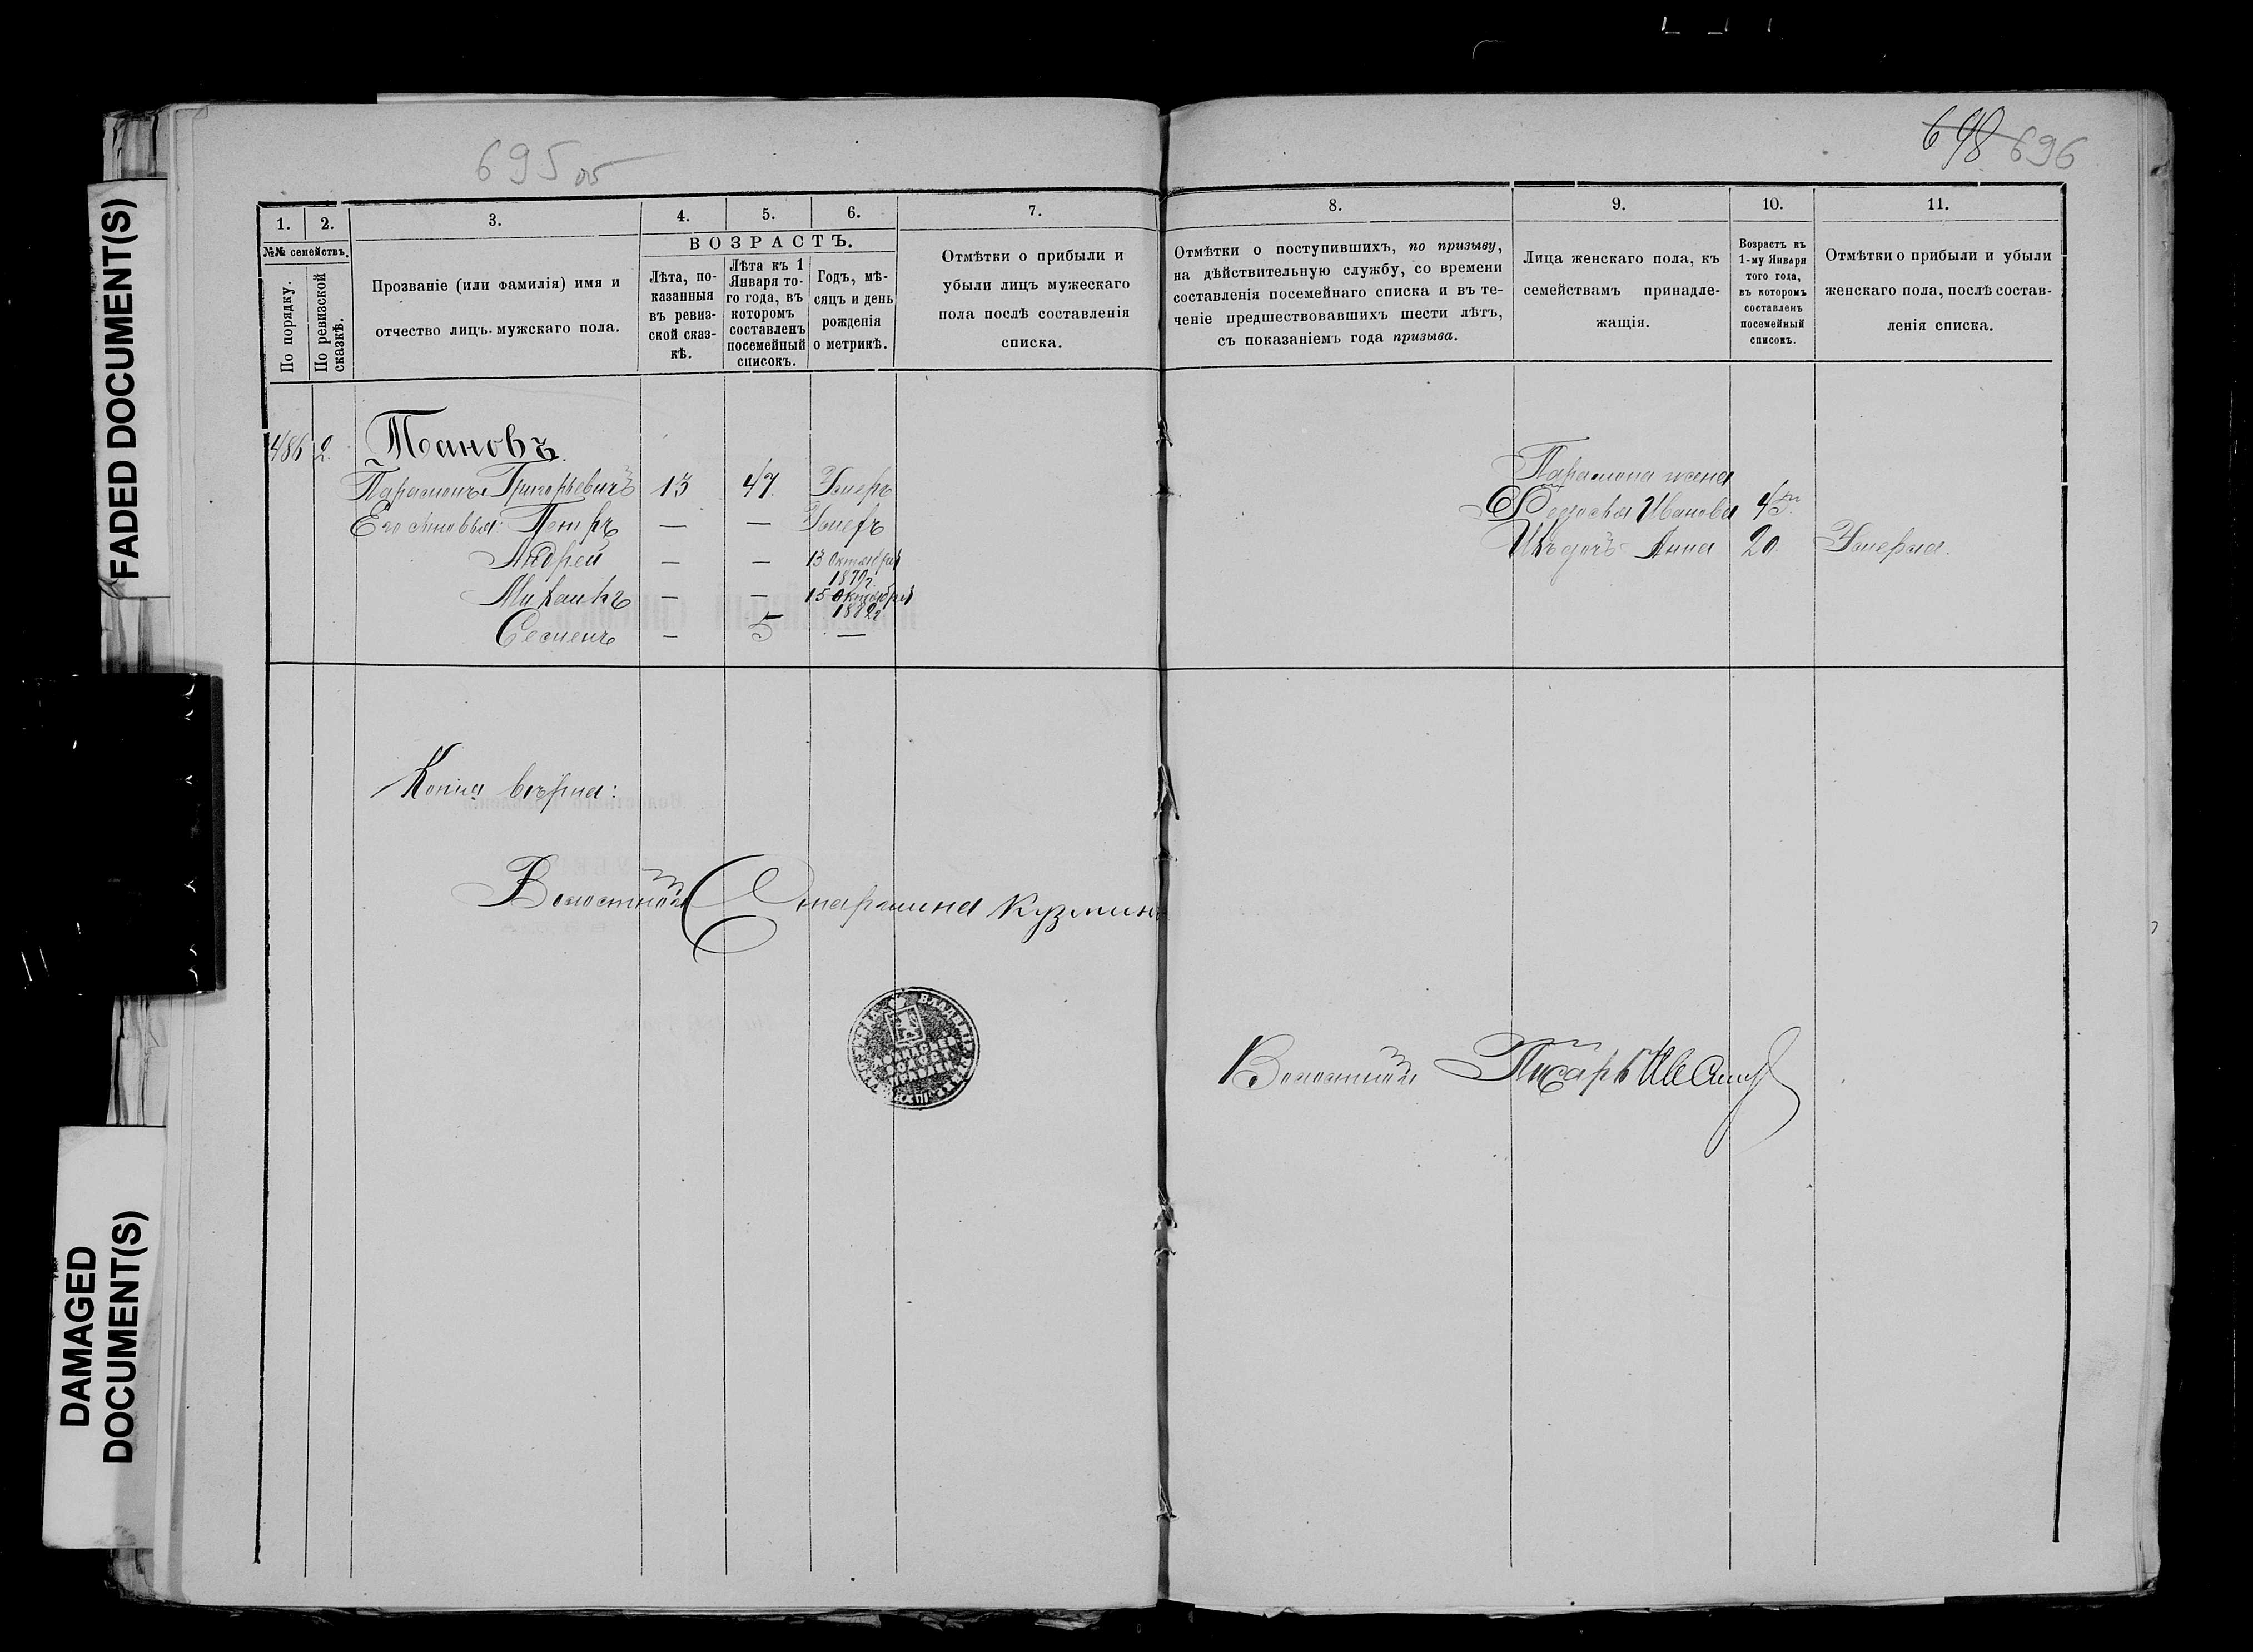 695 об
698 696
FADED DOCUMENT(S)
DAMAGED
DOCUMENT(S)
1. 2. 3. 4. 5. 6. 7.
№№ семействъ.
По порядку.
По ревизской сказкѣ.
Прозваніе (или фамилія) имя и
отчество лицъ мужскаго пола.
ВОЗРАСТЪ.
Лѣта, по-
казанныя
въ ревиз-
ской сказ-
кѣ.
Лѣта къ 1
Января то-
го года, въ
которомъ
составленъ
посемейный
списокъ.
Годъ, мѣ-
сяцъ и день
рожденія
о метрикѣ.
Отмѣтки о прибыли и
убыли лицъ мужескаго
пола послѣ составленія
списка.
8. 9. 10. 11.
Отмѣтки о поступившихъ, по призыву,
на дѣйствительную службу, со времени
составленія посемейнаго списка и въ те-
ченіе предшествовавшихъ шести лѣтъ,
съ показаніемъ года призыва.
Лица женскаго пола, къ
семействамъ принадле-
жащія.
Возрастъ къ
1-му Января
того года,
въ которомъ
составленъ
посемейный
списокъ.
Отмѣтки о прибыли и убыли
женскаго пола, послѣ состав-
ленія списка.
486 2. Тановъ.
Парамонъ Григорьевичъ 13 47. Умеръ
Его сыновья: Петръ — — Умеръ
Андрей — — 13 Октября
1879г.
Михаилъ — — 15 Октября
1882г
Семенъ — 5 —
Парамона жена
Федосья Иванова 45.
Ихъ дочь Анна 20. Умерла.
Копія вѣрна:
Волостной Старшина Кузминъ
Волостной Писарь